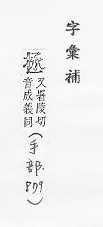 字彙補
又署陵切
音成義同
（手部.879）